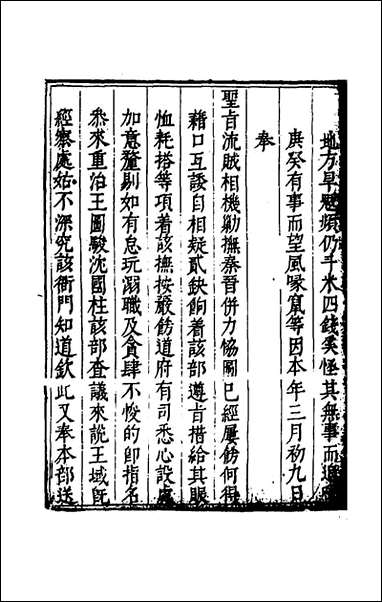 地方旱魃頻仍斗米四錢奚怪其無事而
庚癸有事而望風喙竄等因本年三月初九日
奉
聖旨流賊相機勦撫秦晉併力恊圖已經屢飭何得
藉口互諉自相疑貳缺餉着該部遵旨措給其賑
恤耗搭等項着該撫按嚴飭道府有司悉心設處
加意釐剔如有怠玩溺職及貪肆不悛的卽指名
叅來重治王圖駿沈國柱該部查議來說王域旣
經察處姑不深究該衙門知道欽此又奉本部送